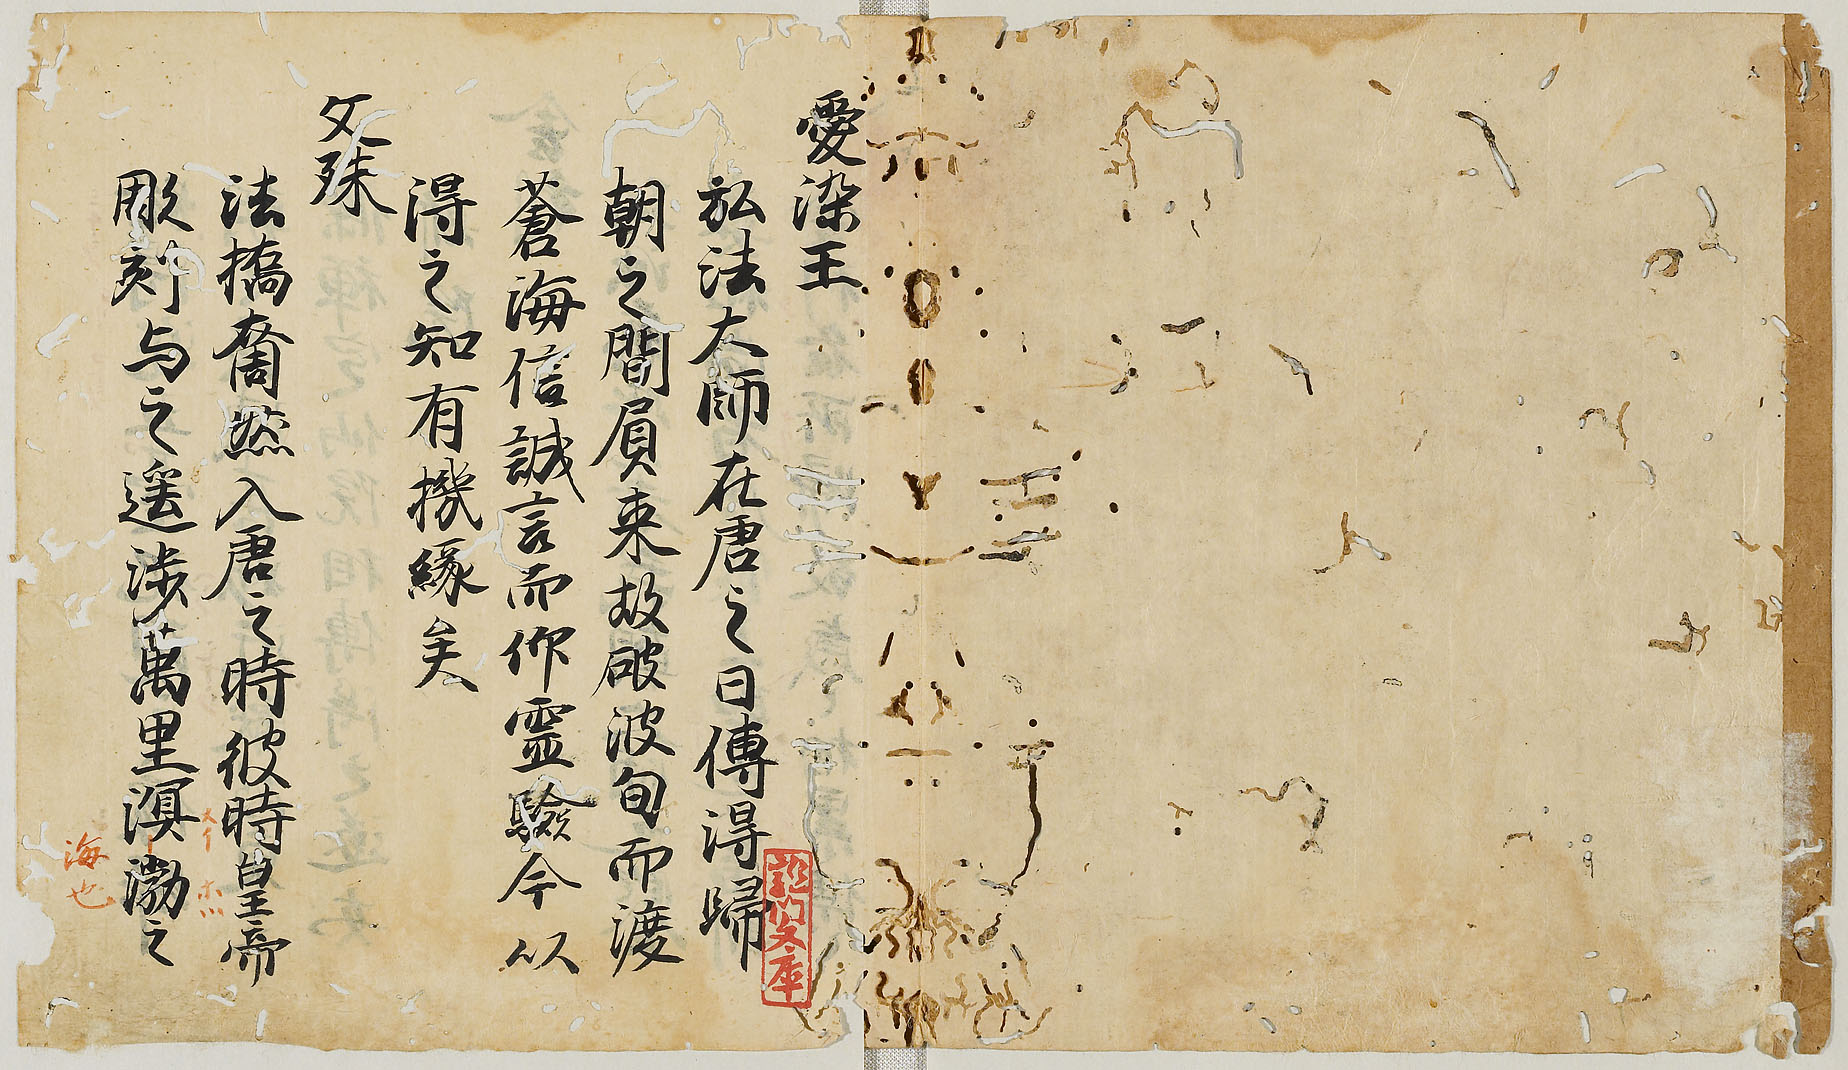 愛染王
弘法大師在唐之日傳得歸
朝之間屓来故破波旬而渡
蒼海信誠言而仰霊驗今以
得之知有機縁矣
文殊
法橋奝然入唐之時彼時皇帝
彫刻与之遥渉萬里溟渤之
海也